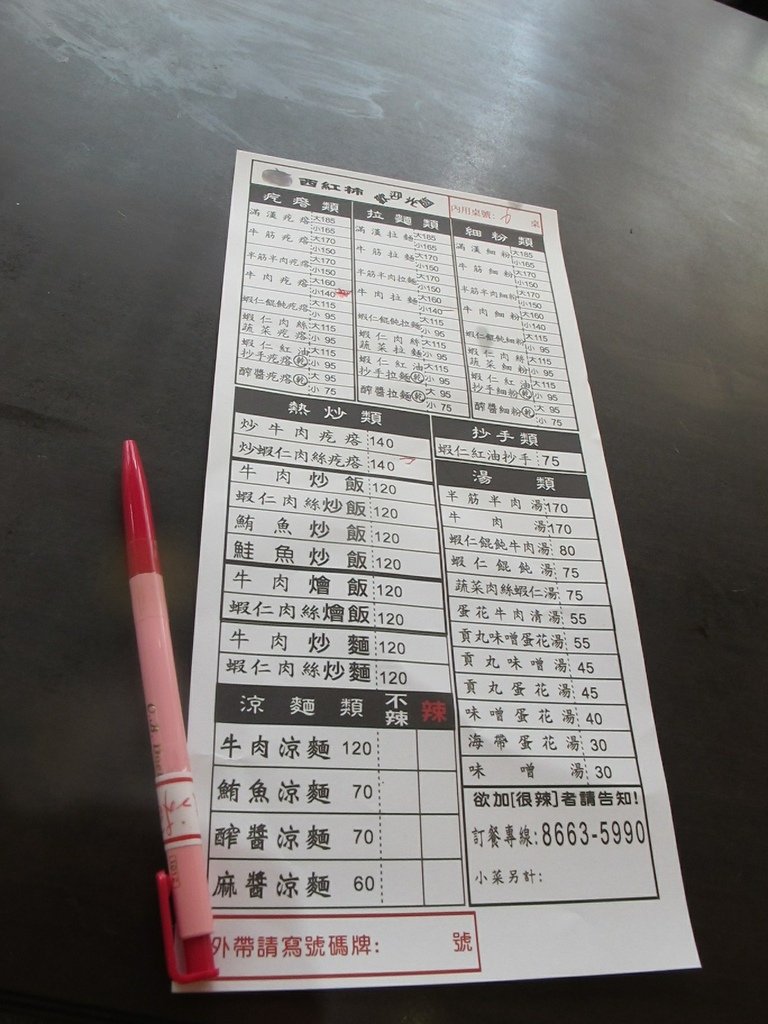 西紅柿 歡迎光臨
內用桌號: 桌
疙瘩類
滿漢疙瘩 大185 小165
牛筋疙瘩 大170 小150
半筋半肉疙瘩 大170 小150
牛肉疙瘩 大160 小140
蝦仁餛飩疙瘩 大115 小 95
蝦仁肉絲蔬菜疙瘩 大115 小 95
蝦仁紅油抄手疙瘩(乾) 大115 小 95
酢醬疙瘩(乾) 大 95 小 75
拉麵類
滿漢拉麵 大185 小165
牛筋拉麵 大170 小150
半筋半肉拉麵 大170 小150
牛肉拉麵 大160 小140
蝦仁餛飩拉麵 大115 小 95
蝦仁肉絲蔬菜拉麵 大115 小 95
蝦仁紅油抄手拉麵(乾) 大115 小 95
酢醬拉麵(乾) 大 95 小 75
細粉類
滿漢細粉 大185 小165
牛筋細粉 大170 小150
半筋半肉細粉 大170 小150
牛肉細粉 大160 小140
蝦仁餛飩細粉 大115 小 95
蝦仁肉絲蔬菜細粉 大115 小 95
蝦仁紅油抄手細粉(乾) 大115 小 95
酢醬細粉(乾) 大 95 小 75
熱炒類
炒牛肉疙瘩 140
炒蝦仁肉絲疙瘩 140
牛肉炒飯 120
蝦仁肉絲炒飯 120
鮪魚炒飯 120
鮭魚炒飯 120
牛肉燴飯 120
蝦仁肉絲燴飯 120
牛肉炒麵 120
蝦仁肉絲炒麵 120
涼麵類 不辣 辣
牛肉涼麵 120
鮪魚涼麵 70
醡醬涼麵 70
麻醬涼麵 60
抄手類
蝦仁紅油抄手 75
湯類
半筋半肉湯 170
牛肉湯 170
蝦仁餛飩牛肉湯 80
蝦仁餛飩湯 75
蔬菜肉絲蝦仁湯 75
蛋花牛肉清湯 55
貢丸味噌蛋花湯 55
貢丸味噌湯 45
貢丸蛋花湯 45
味噌蛋花湯 40
海帶蛋花湯 30
味噌湯 30
欲加[很辣]者請告知!
訂餐專線:8663-5990
小菜另計:
外帶請寫號碼牌: 號